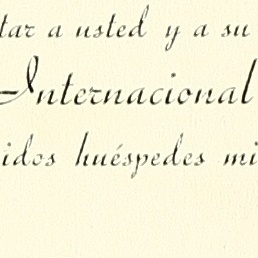 tar a usted y a su
Internacional
idos huéspedes mi